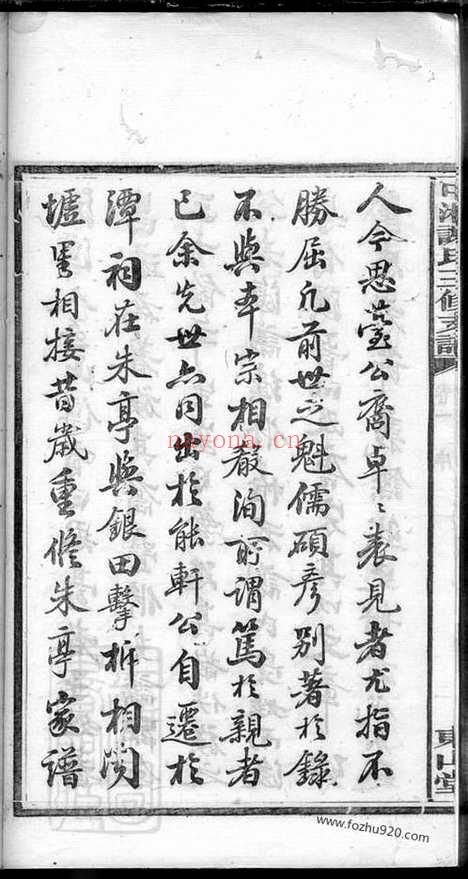 中湘譚氏三修支譜
東山堂
人今思薹公裔卓〻表見者尤指不
勝屈凡前世之魁儒碩彥別著於錄
不與本宗相殽洵所謂篤於親者
已余先世亦同出於能軒公自遷於
潭祠莊朱亭與銀田擊柝相聞
壚里相接昔歲重修朱亭家譜
nayona.cn
www.fozhu920.com